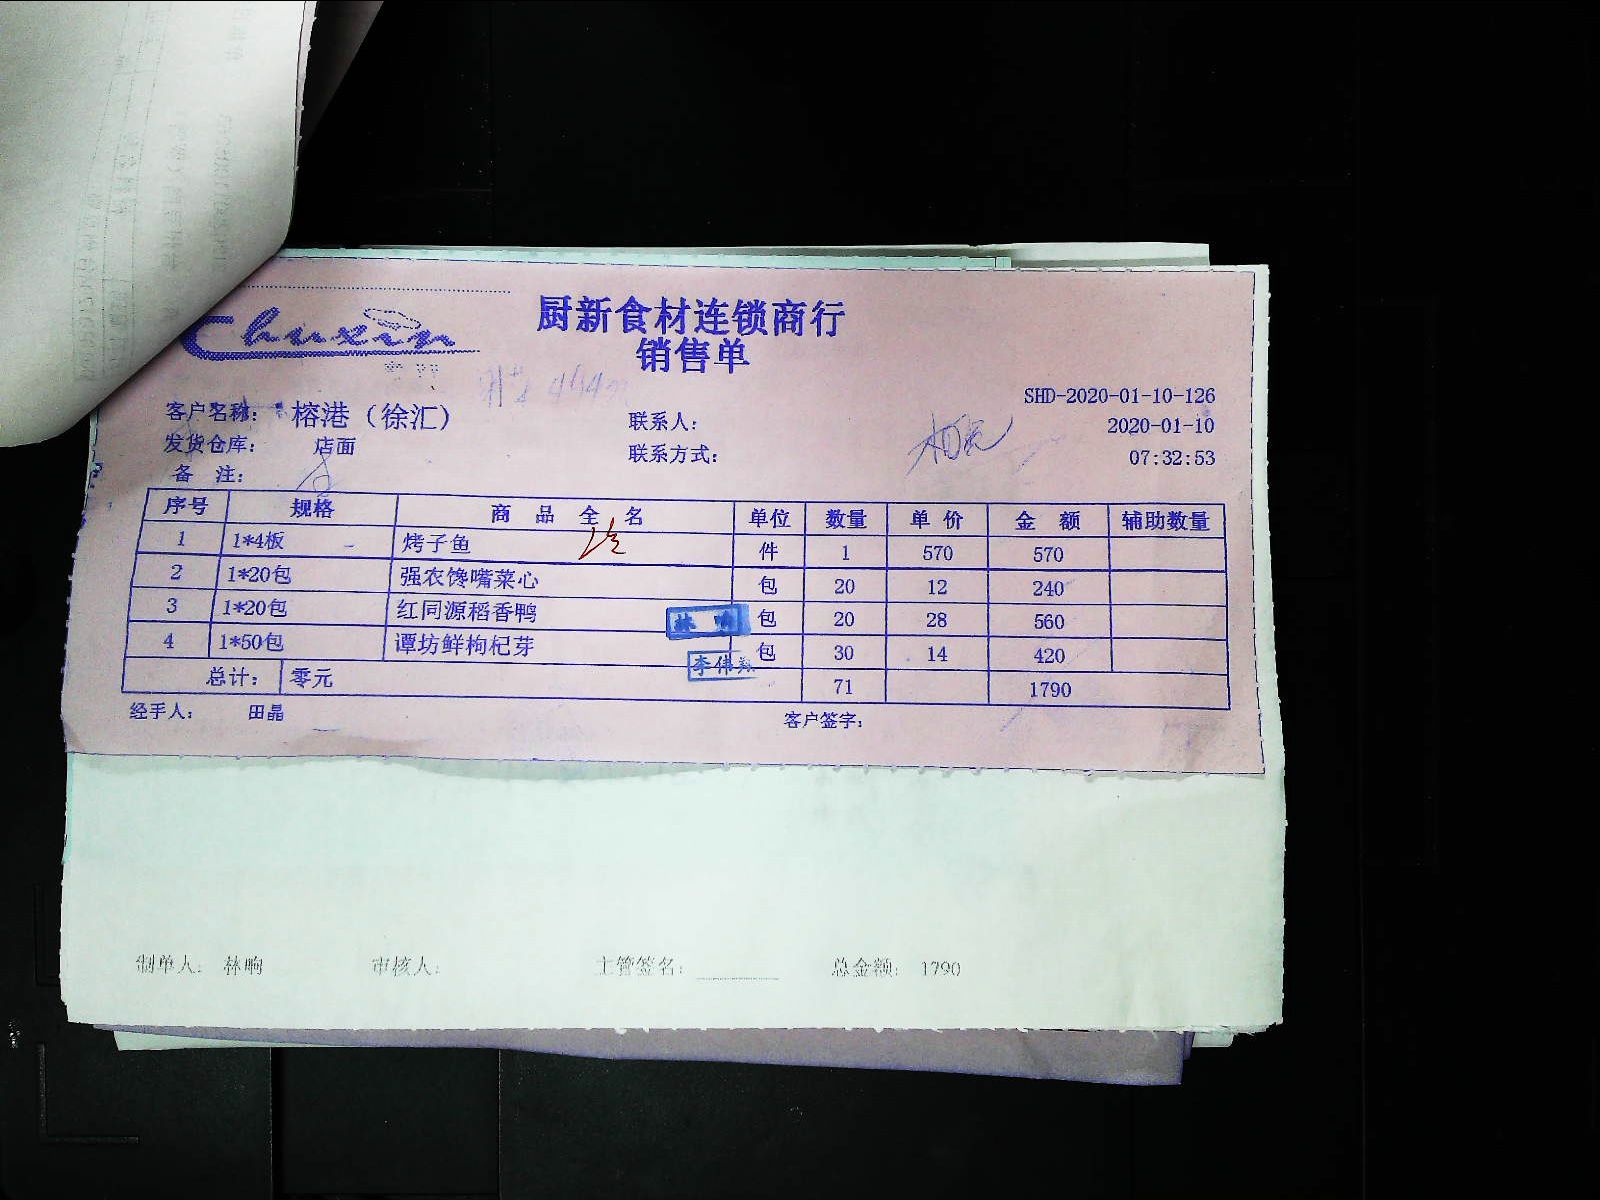 Chuxin
厨新食材连锁商行
销售单
SHD-2020-01-10-126
客户名称： 榕港（徐汇） 联系人： 2020-01-10
发货仓库： 店面 联系方式： 07:32:53
备 注：
序号 规格 商 品 全 名 单位 数量 单 价 金 额 辅助数量
1 1*4板 烤子鱼 件 1 570 570
2 1*20包 强农馋嘴菜心 包 20 12 240
3 1*20包 红同源稻香鸭 包 20 28 560
4 1*50包 谭坊鲜枸杞芽 包 30 14 420
李伟
总计： 零元 71 1790
经手人： 田晶 客户签字：
制单人： 林晌 审核人： 主管签名： 总金额： 1790